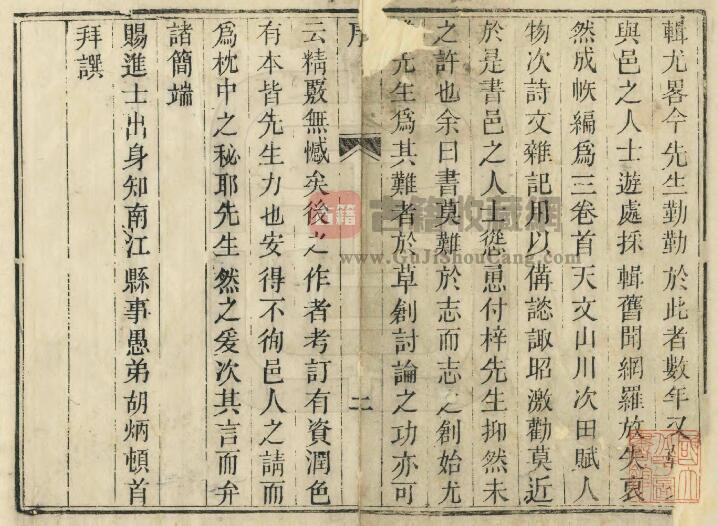 輯尤畧今先生勤勤於此者數年又
與邑之人士遊處採輯舊聞網羅放失裒
然成帙編爲三卷首天文山川次田賦人
物次詩文雜記用以備諮諏昭激勸莫近
於是書邑之人士慫恿付梓先生抑然未
之許也余曰書莫難於志而志之創始尤
先生爲其難者於草創討論之功亦可
序
二
云精覈無憾矣後之作者考訂有資潤色
有本皆先生力也安得不徇邑人之請而
爲枕中之秘耶先生然之爰次其言而弁
諸簡端
賜進士出身知南江縣事愚弟胡炳頓首
拜譔
古籍收藏網
www.GuJiShouCang.com
古籍